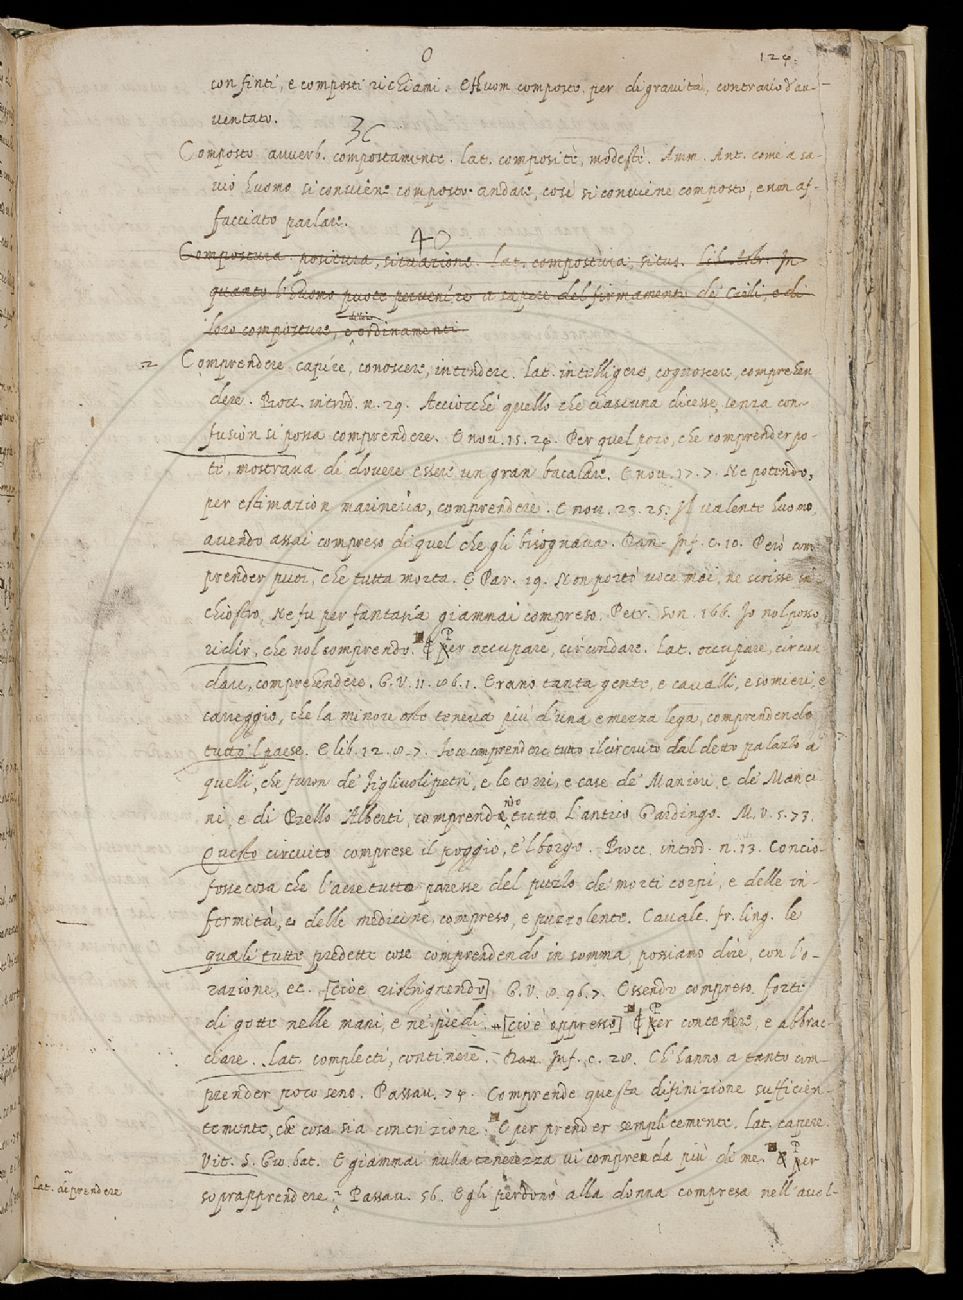 O
124.
con finti, e composti richiami. E huom composto, per di grauità, contrario d'au-
uentato.
3C
Composto auuerb. compostamente. Lat. compositè, modestè. Amm. Ant. come a sa-
uio huomo si conuiene composto andare, così si conuiene composto, e non af-
facciato parlare.
4O
Compostura positura, situazione. Lat. compostura, situs. Lib. Astr. In
quanto l'huomo puote peruenire a sapere del firmamento de' Cieli, e di
loro composture, e ordinamenti
2 Comprendere capire, conoscere, intendere. Lat. intelligere, cognoscere, comprehen
dere. Bocc. introd. n. 29. Acciocchè quello che ciascuna dicesse, senza con-
fusion si possa comprendere. E nou. 15. 24. Per quel poco, che comprender po-
tè, mostraua di douere essere un gran bacalare. E nou. 17. 7. Ne potendo,
per estimazion marineria, comprendere. E nou. 23. 25. Il ualente huomo,
auendo assai compreso di quel che gli bisognaua. Dan. Inf. c. 10. Però com
prender puoi, che tutta morta. E Par. 19. Non portò uoce mai, ne scrisse in
chiostro, Ne fu per fantasia giammai compreso. Petr. Son. 166. Io nol posso
ridir, che nol comprendo. E Per occupare, circundare. Lat. occupare, circun
dare, comprehendere. G. V. 11. 86. 1. Erano tanta gente, e caualli, e somieri, e
careggio, che la minor oste teneua più d'una e mezza lega, comprendendo
tutto 'l paese. E lib. 12. 8. 7. Fece comprendere tutto il circuito dal detto palazzo a
quelli, che furon de' figliuoli petri, e le torri, e case de' Manieri, e de' Manci
ni, e di Bello Alberti, comprendendo tutto l'antico Gardingo. M. V. 5. 73.
Questo circuito comprese il poggio, e 'l borgo. Bocc. introd. n. 13. Concio-
fosse cosa che l'aere tutto paresse del puzzo de' morti corpi, e delle in-
fermità, e delle medicine, compreso, e puzzolente. Caualc. fr. ling. le
quali tutte predette cose comprendendo in somma, possiamo dire, con l'o-
razione, ec. [cioè ristrignendo] G. V. 8. 96. 7. Essendo compreso forte
di gotte nelle mani, e ne' piedi. [cioè oppresso] E Per contenere, e abbrac-
ciare. Lat. complecti, continere. Dan. Inf. c. 28. Ch'hanno a tanto com-
prender poco seno. Passau. 74. Comprende questa difinizione sufficien-
temente, che cosa sia contrizione. E per prender semplicemente. Lat. capere.
Vit. S. Gio. bat. E giammai nulla tenerezza ui comprenda più di me. E Per
soprapprendere. Passau. 56. Egli perdonò alla donna compresa nell'auol-
Lat. arprendere